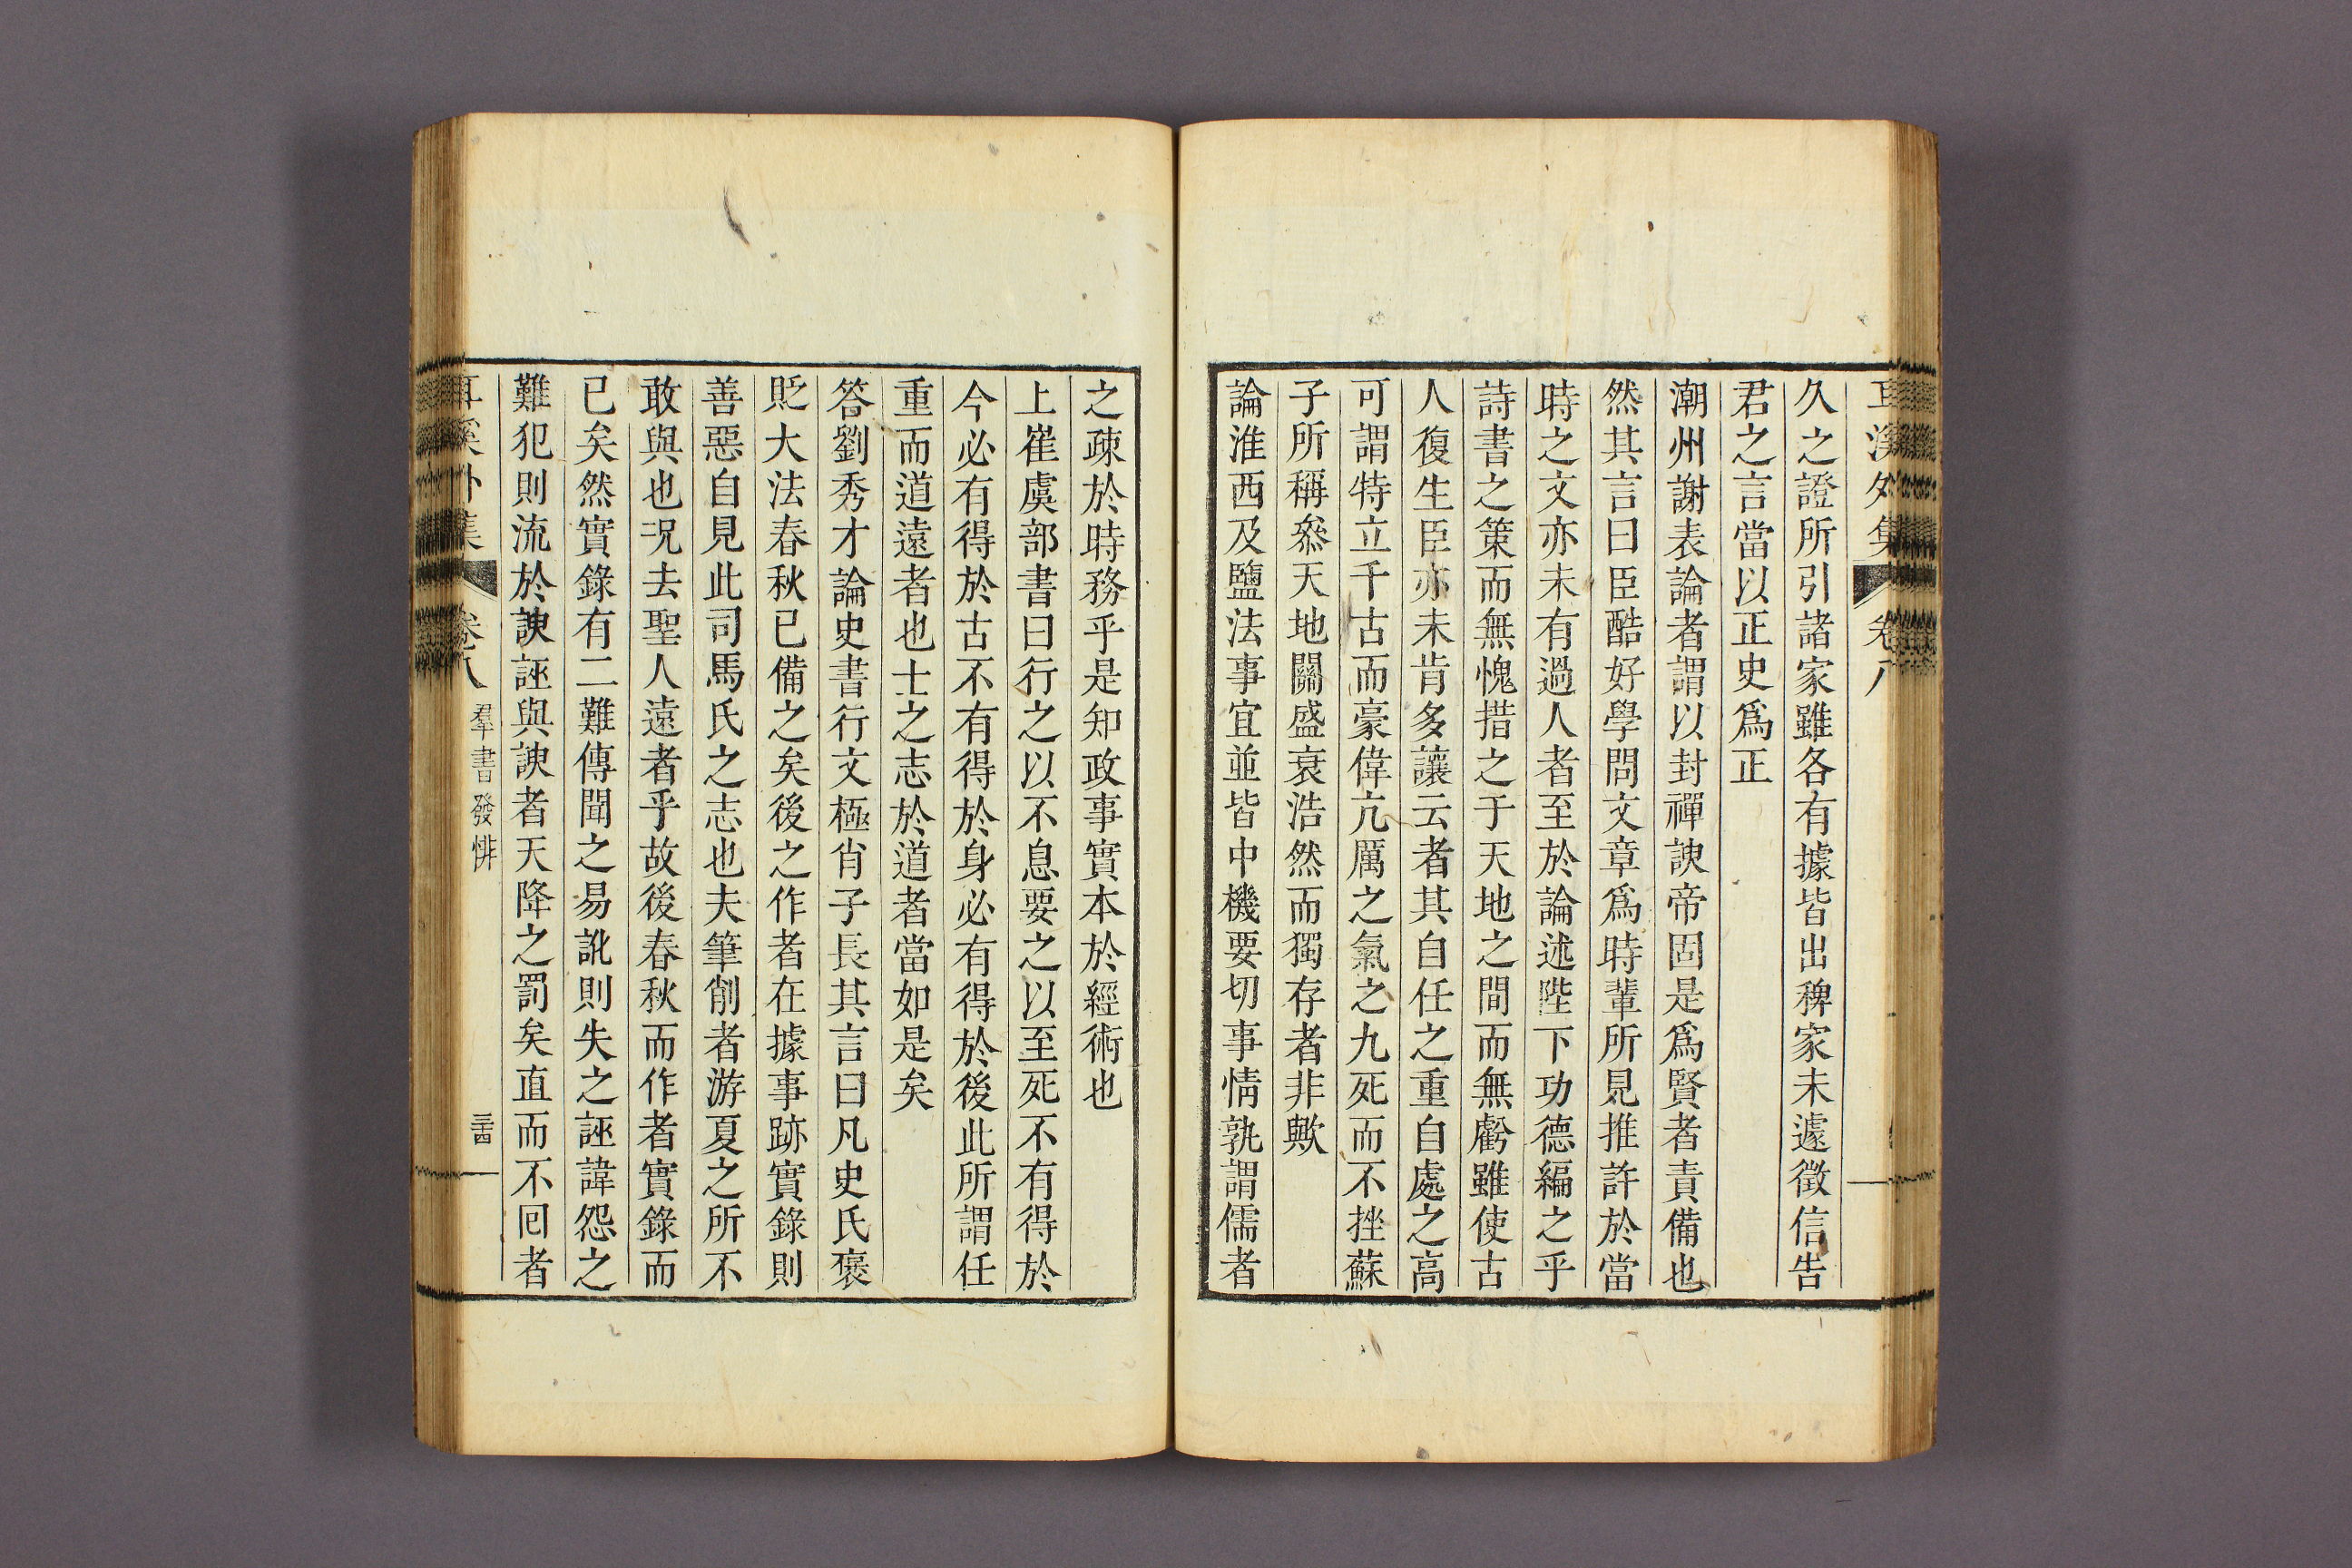 耳溪外集 卷八
久之證所引諸家雖各有據皆出稗家未遽徵信告
君之言當以正史爲正
潮州謝表論者謂以封禪諛帝固是爲賢者責備也
然其言曰臣酷好學問文章爲時輩所見推許於當
時之文亦未有過人者至於論述陛下功德編之乎
詩書之策而無愧措之于天地之間而無虧雖使古
人復生臣亦未肯多讓云者其自任之重自處之高
可謂特立千古而豪偉亢厲之氣之九死而不挫蘇
子所稱叅天地關盛衰浩然而獨存者非歟
論淮西及鹽法事宜並皆中機要切事情孰謂儒者
之疎於時務乎是知政事實本於經術也
上崔虞部書曰行之以不息要之以至死不有得於
今必有得於古不有得於身必有得於後此所謂任
重而道遠者也士之志於道者當如是矣
答劉秀才論史書行文極肖子長其言曰凡史氏褒
貶大法春秋已備之矣後之作者在據事跡實錄則
善惡自見此司馬氏之志也夫筆削者游夏之所不
敢與也况去聖人遠者乎故後春秋而作者實錄而
已矣然實錄有二難傳聞之易訛則失之誣諱怨之
難犯則流於諛誣與諛者天降之罰矣直而不囘者
耳溪外集 卷八 羣書發悱 三十四